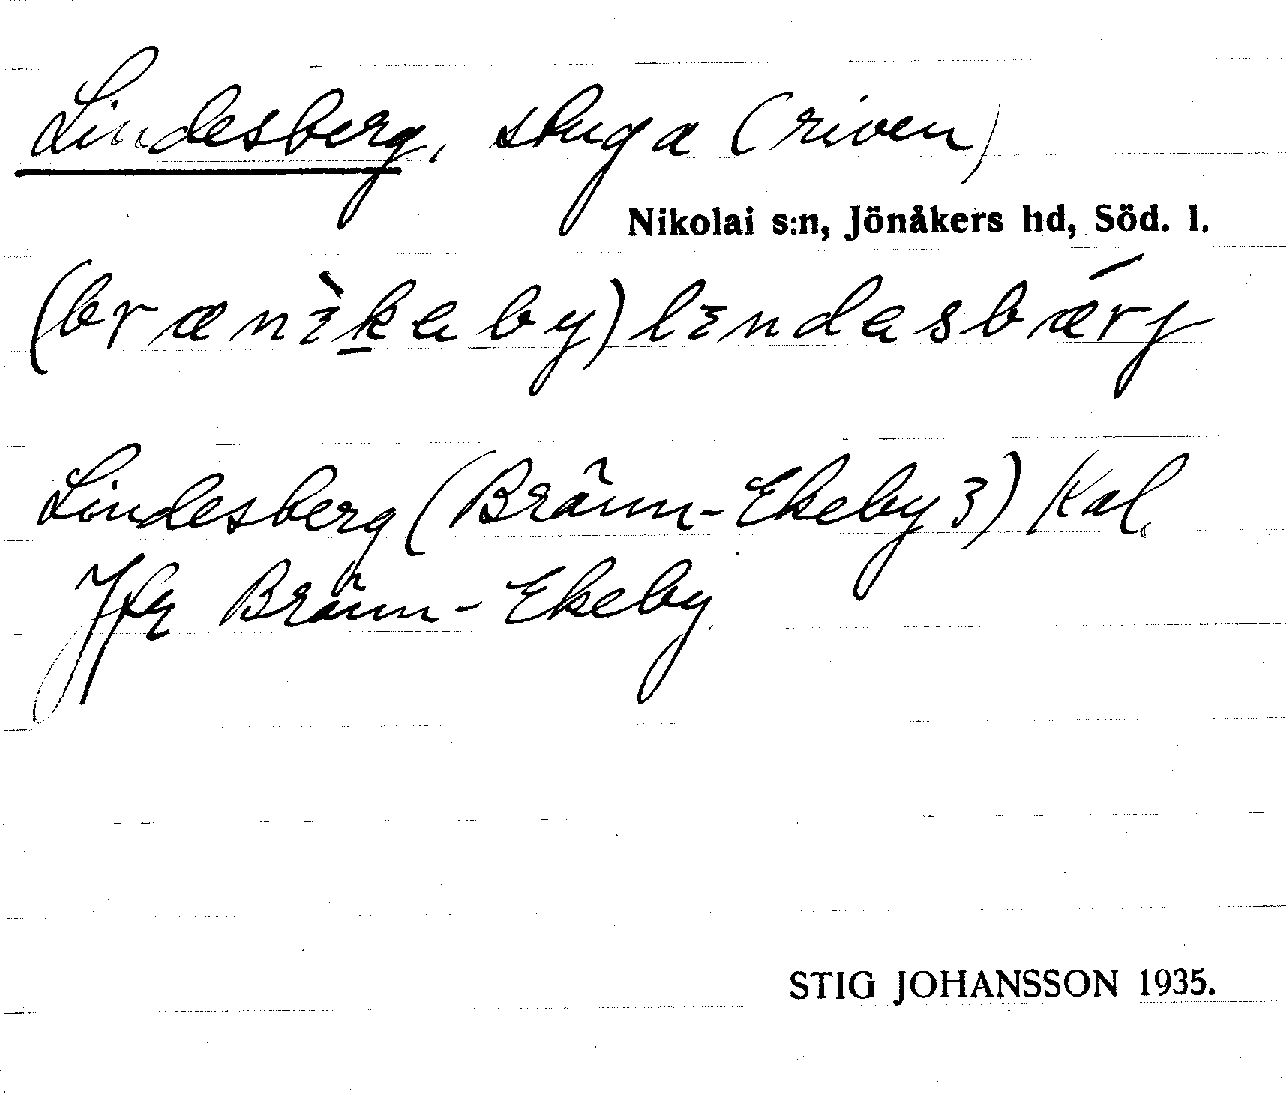 Lindesberg, stuga (riven)
Nikolai s:n, Jönåkers hd, Söd. l.
(brænìkaby) lindasbǽrj
Lindesberg (Bränn-Ekeby 3) Kal.
Jfr Bränn-Ekeby
STIG JOHANSSON 1935.